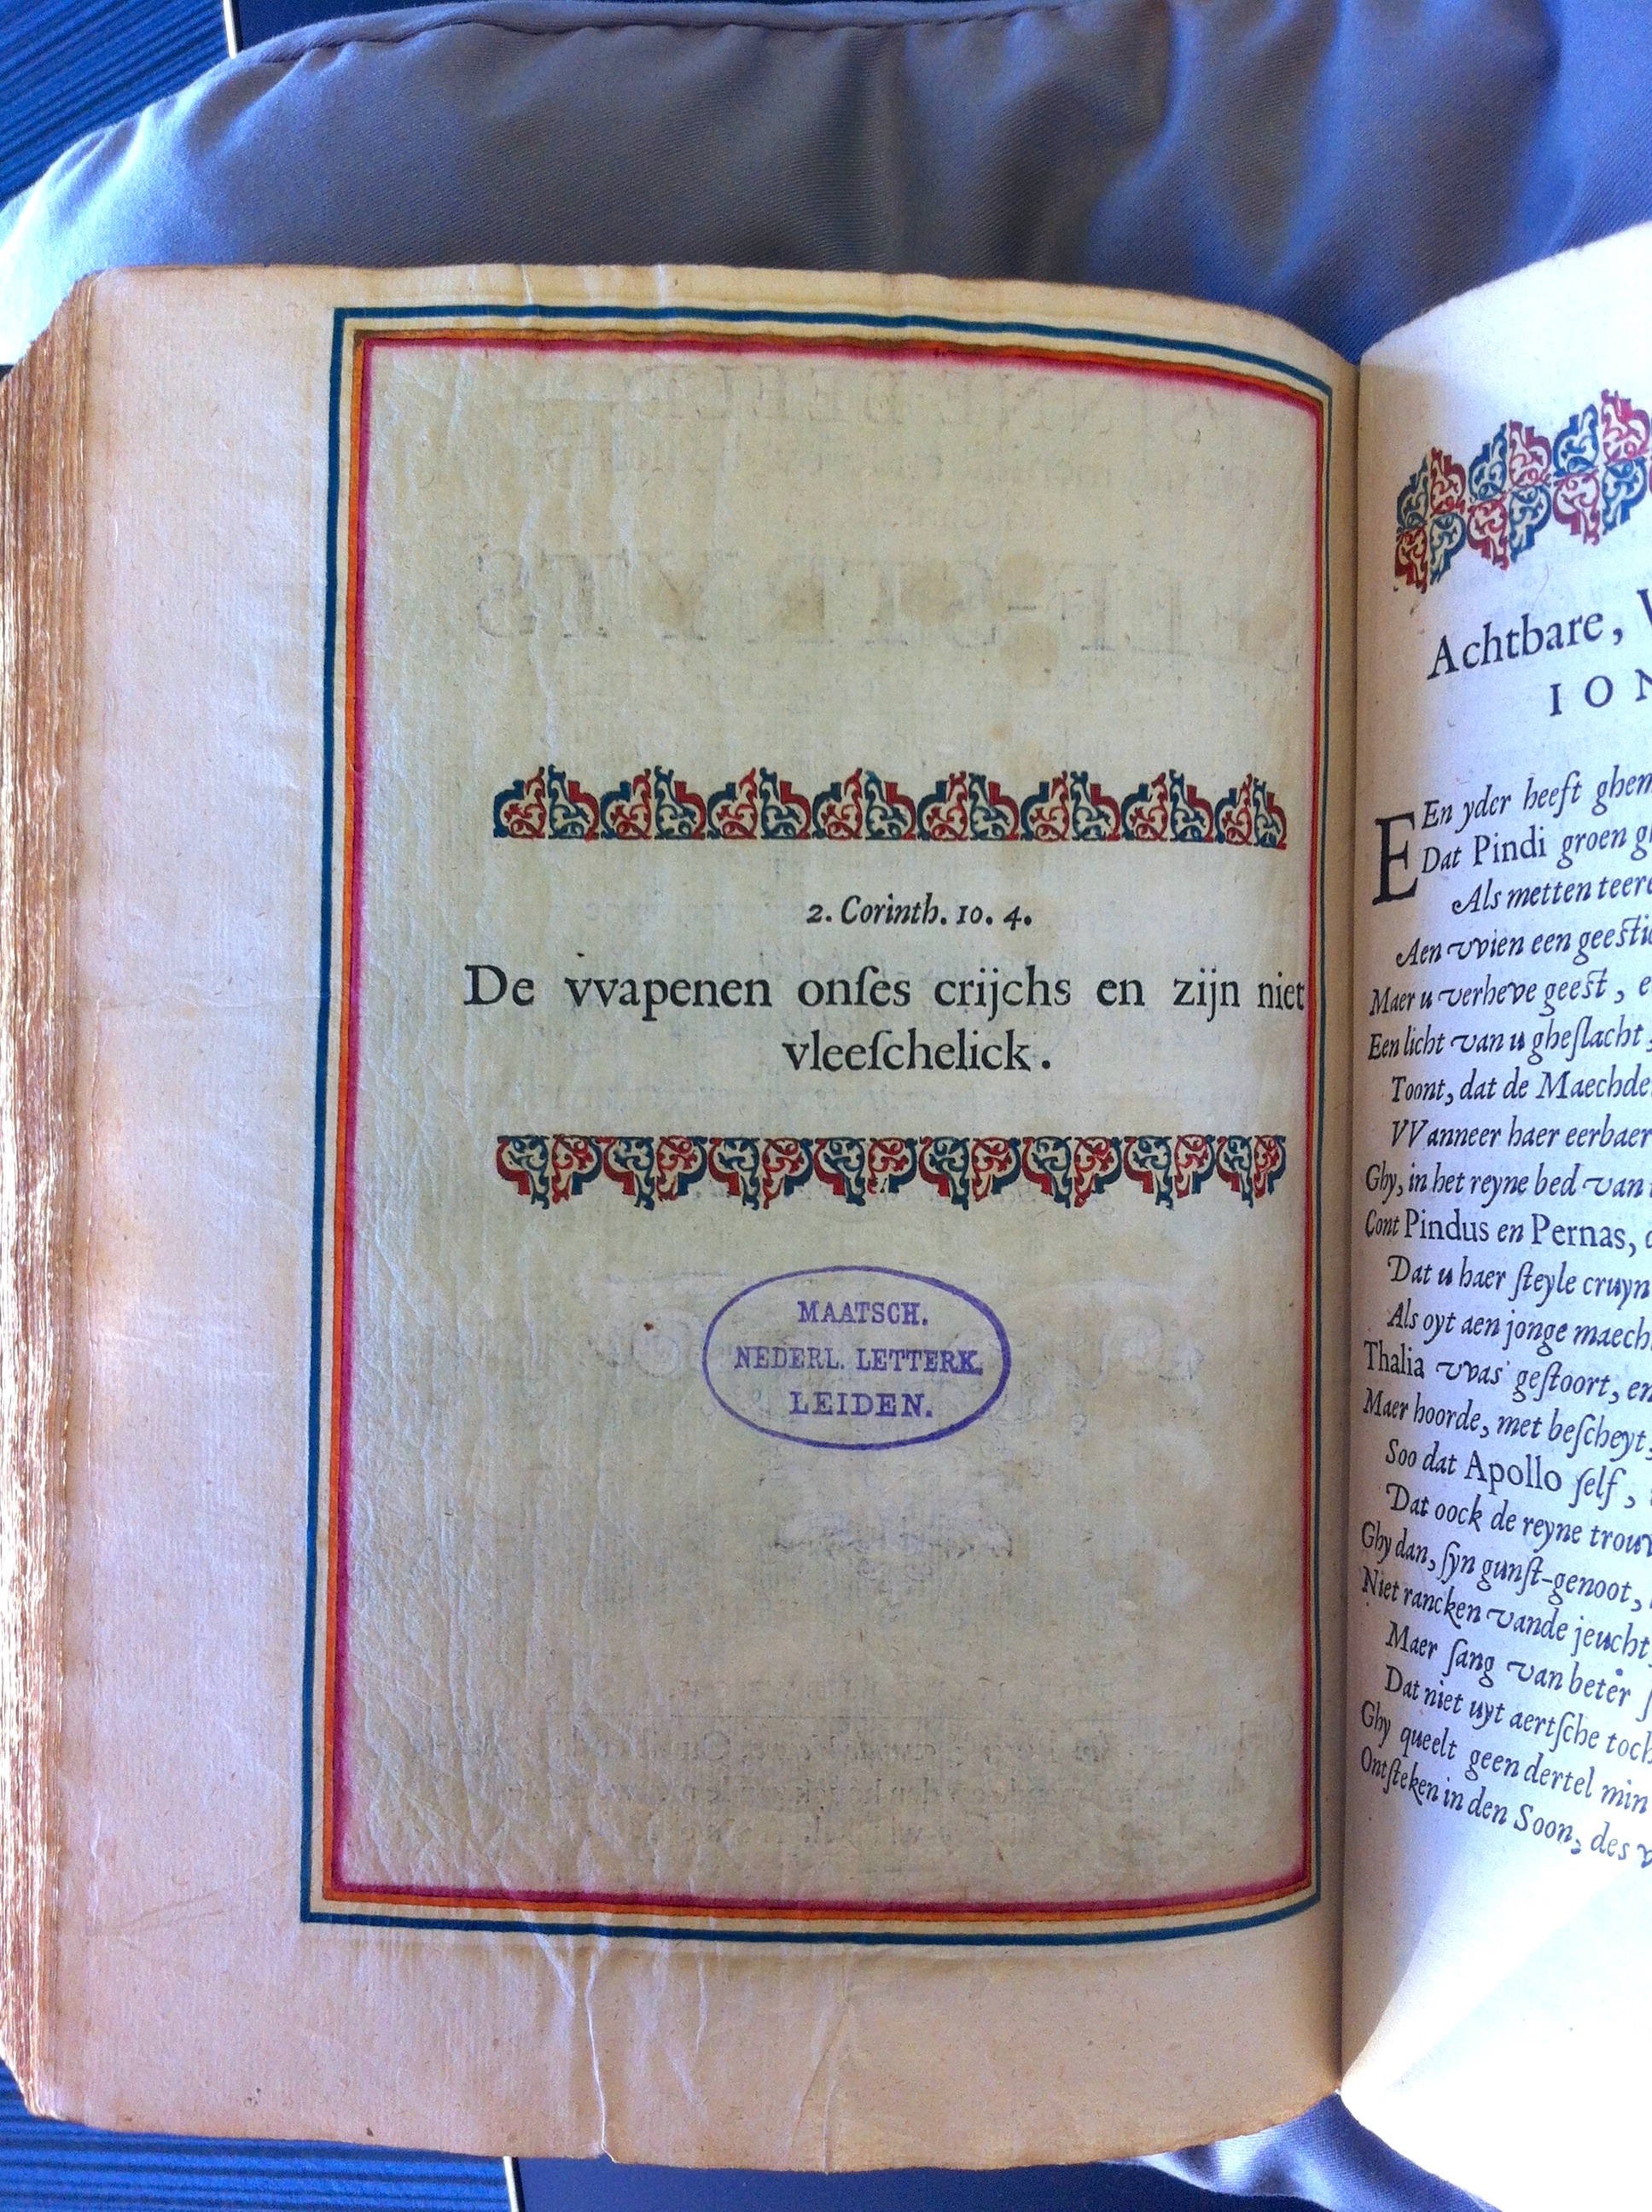 2. Corinth. 10. 4.
De vvapenen onſes crijchs en zijn niet
vleeſchelick.
MAATSCH.
NEDERL. LETTERK.
LEIDEN.
Achtbare,
EEn yder heeft
Dat Pindi groen
Als metten
Aen vvien een
Maer u verheve geest,
Een licht van u gheſlacht
Toont, dat de
VVanneer haer
Ghy, in het reyne bed van
Cont Pindus en Pernas,
Dat u haer ſteyle
Als oyt aen jonge
Thalia vvas geſtoort,
Maer hoorde, met beſcheyt,
Soo dat Apollo ſelf,
Dat oock de reyne
Ghy dan, ſyn gunſt-genoot,
Niet rancken vande jeucht
Maer ſang van beter
Dat niet uyt aertſche
Ghy queelt geen dertel
Ontſteken in den Soon, des